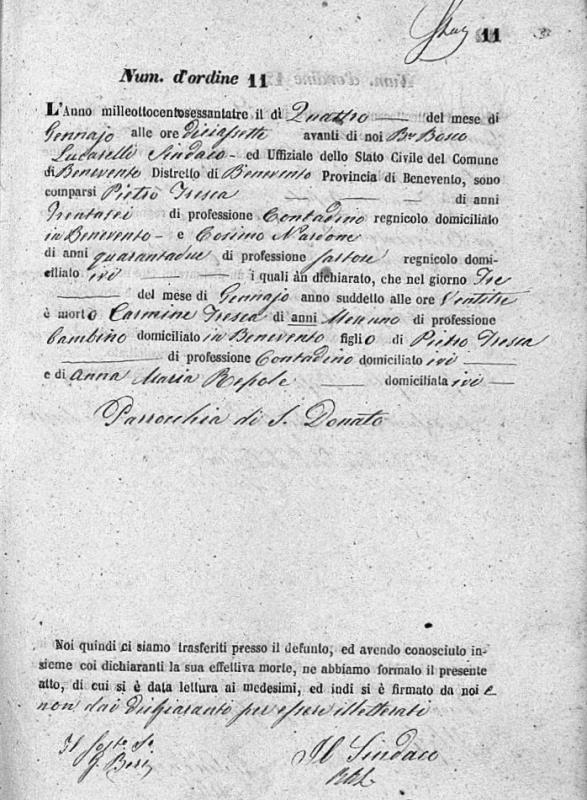 11
Num. d'ordine 11
L'Anno milleottocentosessantatre il dì Quattro del mese di
Gennajo alle ore diciassette avanti di noi Bne Bosco
Lucarelli Sindaco - ed Uffiziale dello Stato Civile del Comune
di Benevento Distretto di Benevento Provincia di Benevento, sono
comparsi Pietro Tresca di anni
Trentasei di professione Contadino regnicolo domiciliato
in Benevento - e Cosimo Nardone
di anni quarantadue di professione sartore regnicolo domi-
ciliato ivi i quali àn dichiarato, che nel giorno Tre
del mese di Gennajo anno suddetto alle ore Ventitre
è morto Carmine Tresca di anni Mesi uno di professione
bambino domiciliato in Benevento figlio di Pietro Tresca
di professione Contadino domiciliato ivi
e di Anna Maria Repole domiciliata ivi
Parrocchia di S. Donato
Noi quindi ci siamo trasferiti presso il defunto, ed avendo conosciuto in-
sieme coi dichiaranti la sua effettiva morte, ne abbiamo formato il presente
atto, di cui si è data lettura ai medesimi, ed indi si è firmato da noi e
non dai dichiaranti per essere illetterati
Il Sosto So
G.
Il Sindaco